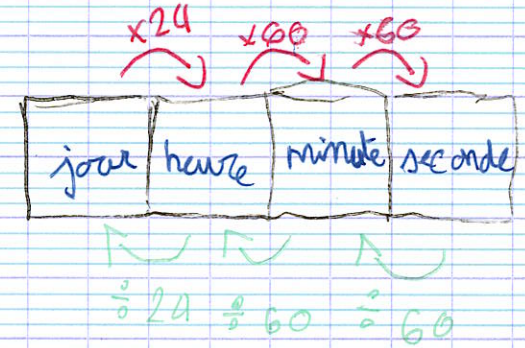 ×24 ×60 ×60
jour heure minute seconde
÷24 ÷60 ÷60